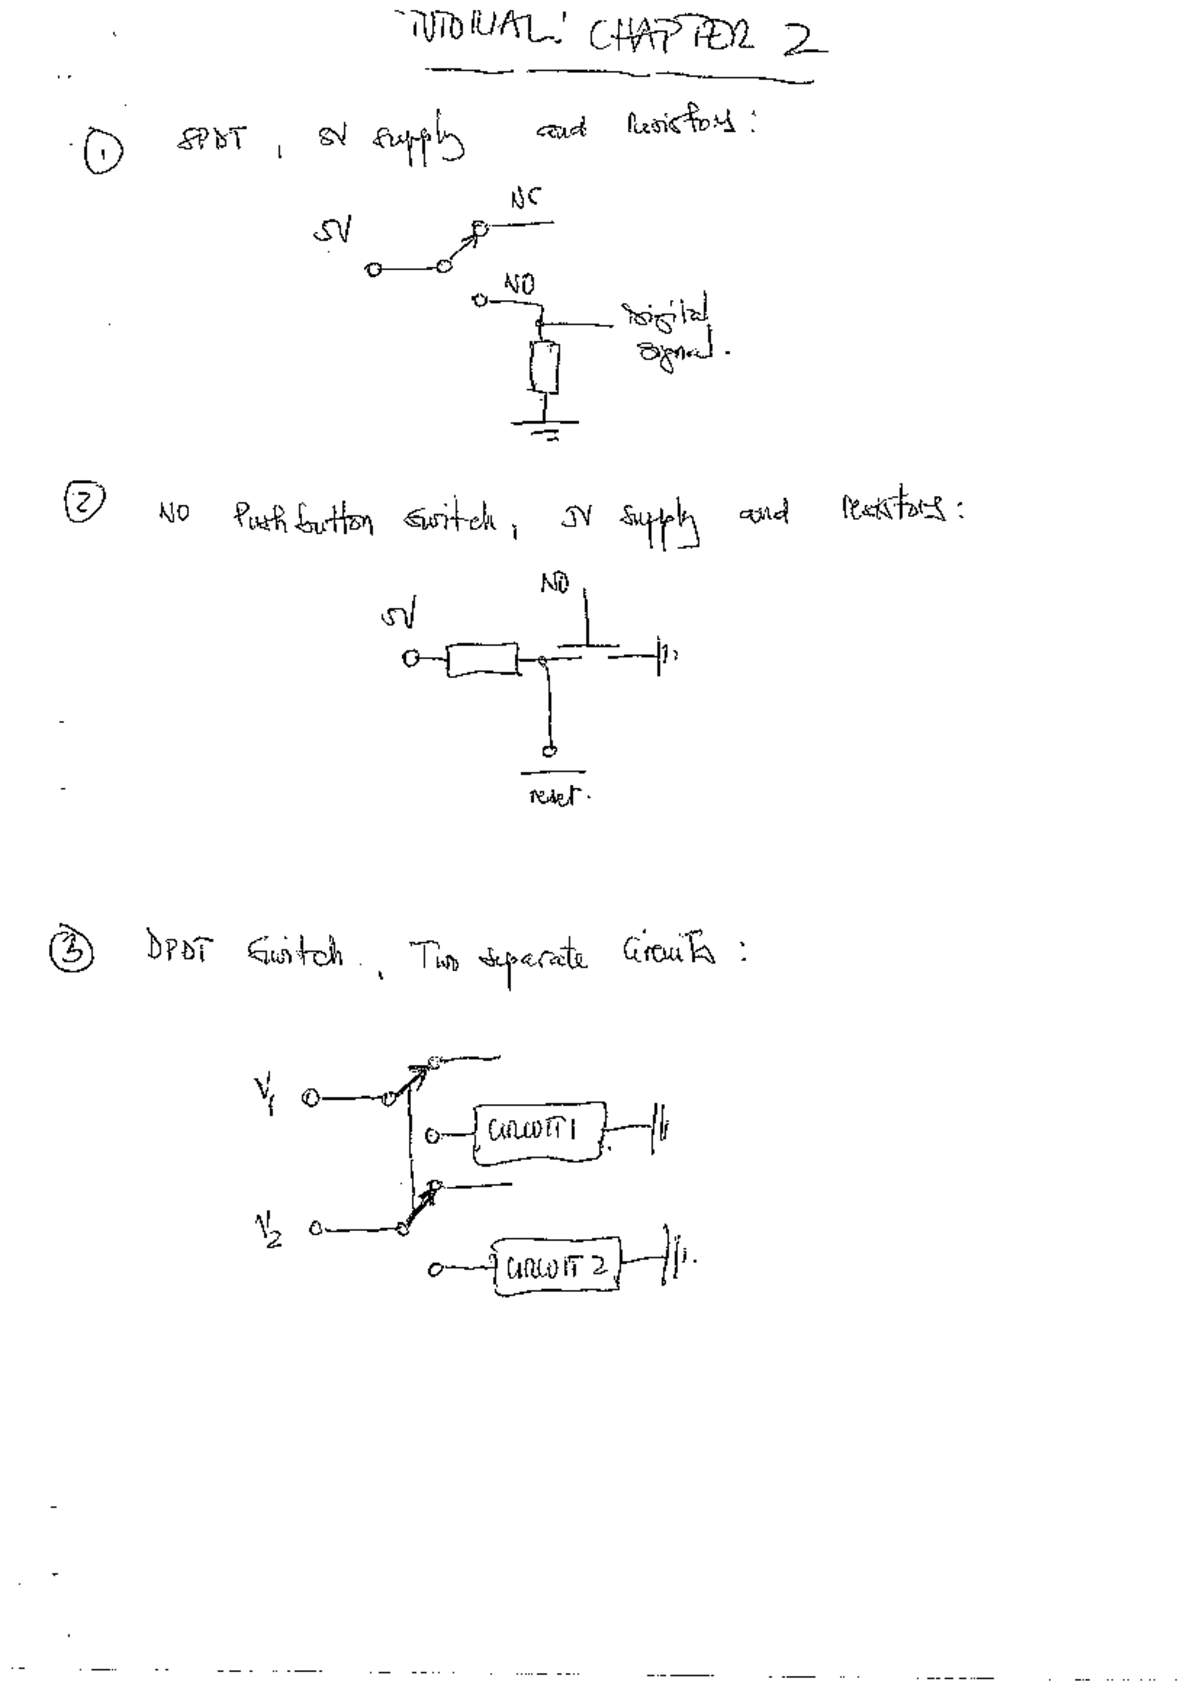 TUTORIAL: CHAPTER 2
① SPDT, 5V supply and Resistors:
NC
5V
NO
Digital
signal.
② NO Push button switch, 5V supply and resistors:
NO
5V
reset.
③ DPDT Switch, Two separate Circuits:
V1
CIRCUIT 1
V2
CIRCUIT 2